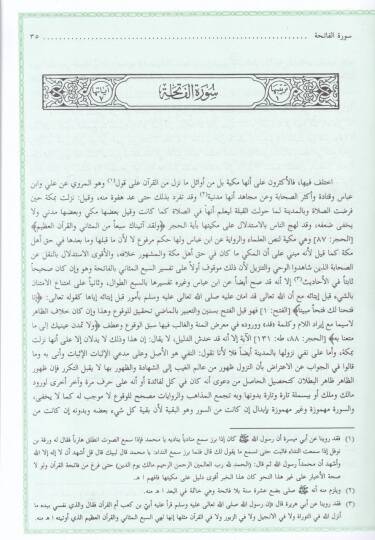 سورة الفاتحة ........................................ ٣٥
ترتيبها ١ سورة الفاتحة آياتها ٧
اختلف فيها، فالأكثرون على أنها مكية بل من أوائل ما نزل من القرآن على قول(١) وهو المروي عن علي وابن
عباس وقتادة وأكثر الصحابة وعن مجاهد أنها مدنية(٢) وقد تفرد بذلك حتى عد هفوة منه، وقيل: نزلت بمكة حين
فرضت الصلاة وبالمدينة لما حولت القبلة ليعلم أنها في الصلاة كما كانت وقيل بعضها مكي وبعضها مدني ولا
يخفى ضعفه، وقد لهج الناس بالاستدلال على مكيتها بآية الحجر ﴿ولقد آتيناك سبعاً من المثاني والقرآن العظيم﴾
[الحجر: ٨٧] وهي مكية لنص العلماء والرواية عن ابن عباس ولها حكم مرفوع لا لأن ما قبلها وما بعدها في حق أهل
مكة كما قيل لأنه مبني على أن المكي ما كان في حق أهل مكة والمشهور خلافه، والأقوى الاستدلال بالنقل عن
الصحابة الذين شاهدوا الوحي والتنزيل لأن ذلك موقوف أولاً على تفسير السبع المثاني بالفاتحة وهو وإن كان صحيحاً
ثابتاً في الأحاديث(٣) إلا أنه قد صح أيضاً عن ابن عباس وغيره تفسيرها بالسبع الطوال، وثانياً على امتناع الامتنان
بالشيء قبل إيتائه مع أن الله تعالى قد امتن عليه صلى الله تعالى عليه وسلم بأمور قبل إيتائه إياها كقوله تعالى: ﴿إنا
فتحنا لك فتحاً مبيناً﴾ [الفتح: ١] فهو قبل الفتح بسنين والتعبير بالماضي تحقيقاً للوقوع وهذا وإن كان خلاف الظاهر
لاسيما مع إيراد اللام وكلمة «قد» ووروده في معرض المنة والغالب فيها سبق الوقوع وعطف ﴿ولا تمدن عينيك إلى ما
متعنا به﴾ [الحجر: ٨٨، طه: ١٣١] الآية إلا أنه قد خدش الدليل، لا يقال: إن هذا وذلك لا يدلان إلا على أنها نزلت
بمكة، وأما على نفي نزولها بالمدينة أيضاً فلا لأنا نقول: النفي هو الأصل وعلى مدعي الإثبات الإثبات وأنى به وما
قالوا في الجواب عن الاعتراض بأن النزول ظهور من عالم الغيب إلى الشهادة والظهور بها لا يقبل التكرر فإن ظهور
الظاهر ظاهر البطلان كتحصيل الحاصل من دعوى أنه كان في كل لفائدة أو أنه على حرف مرة وآخر أخرى لورود
مالك وملك أو ببسملة تارة وتارة بدونها وبه تجمع المذاهب والروايات مصحح للوقوع لا موجب له كما لا يخفى،
والسورة مهموزة وغير مهموزة بإبدال إن كانت من السور وهو البقية لأن بقية كل شيء بعضه وبدونه إن كانت من
(١) فقد روينا عن أبي ميسرة أن رسول الله ﷺ كان إذا برز سمع منادياً يناديه يا محمد فإذا سمع الصوت انطلق هارباً فقال له ورقة بن
نوفل إذا سمعت النداء فاثبت حتى تسمع ما يقول لك قال فلما برز سمع النداء: يا محمد قال لبيك قال قل أشهد أن لا إله إلا الله
وأشهد أن محمداً رسول الله ثم قال: (الحمد لله رب العالمين الرحمن الرحيم مالك يوم الدين) حتى فرغ من فاتحة القرآن ولو لا
صحة الأخبار على غير هذا النحو كان هذا الخبر أقوى دليل على مكيتها فافهم ا هـ.
(٢) ويلزم منه أنه ﷺ صلى بضع عشرة سنة بلا فاتحة وهي خالفة في البعد ا هـ منه.
(٣) فقد روينا عن أبي هريرة قال فإن رسول الله صلى الله تعالى عليه وسلم قرأ عليه أبيّ بن كعب أم القرآن فقال والذي نفسي بيده ما
أنزل الله في التوراة ولا في الانجيل ولا في الزبور ولا في القرآن مثلها إنها لهي السبع المثاني والقرآن العظيم الذي أوتيته ا هـ منه.